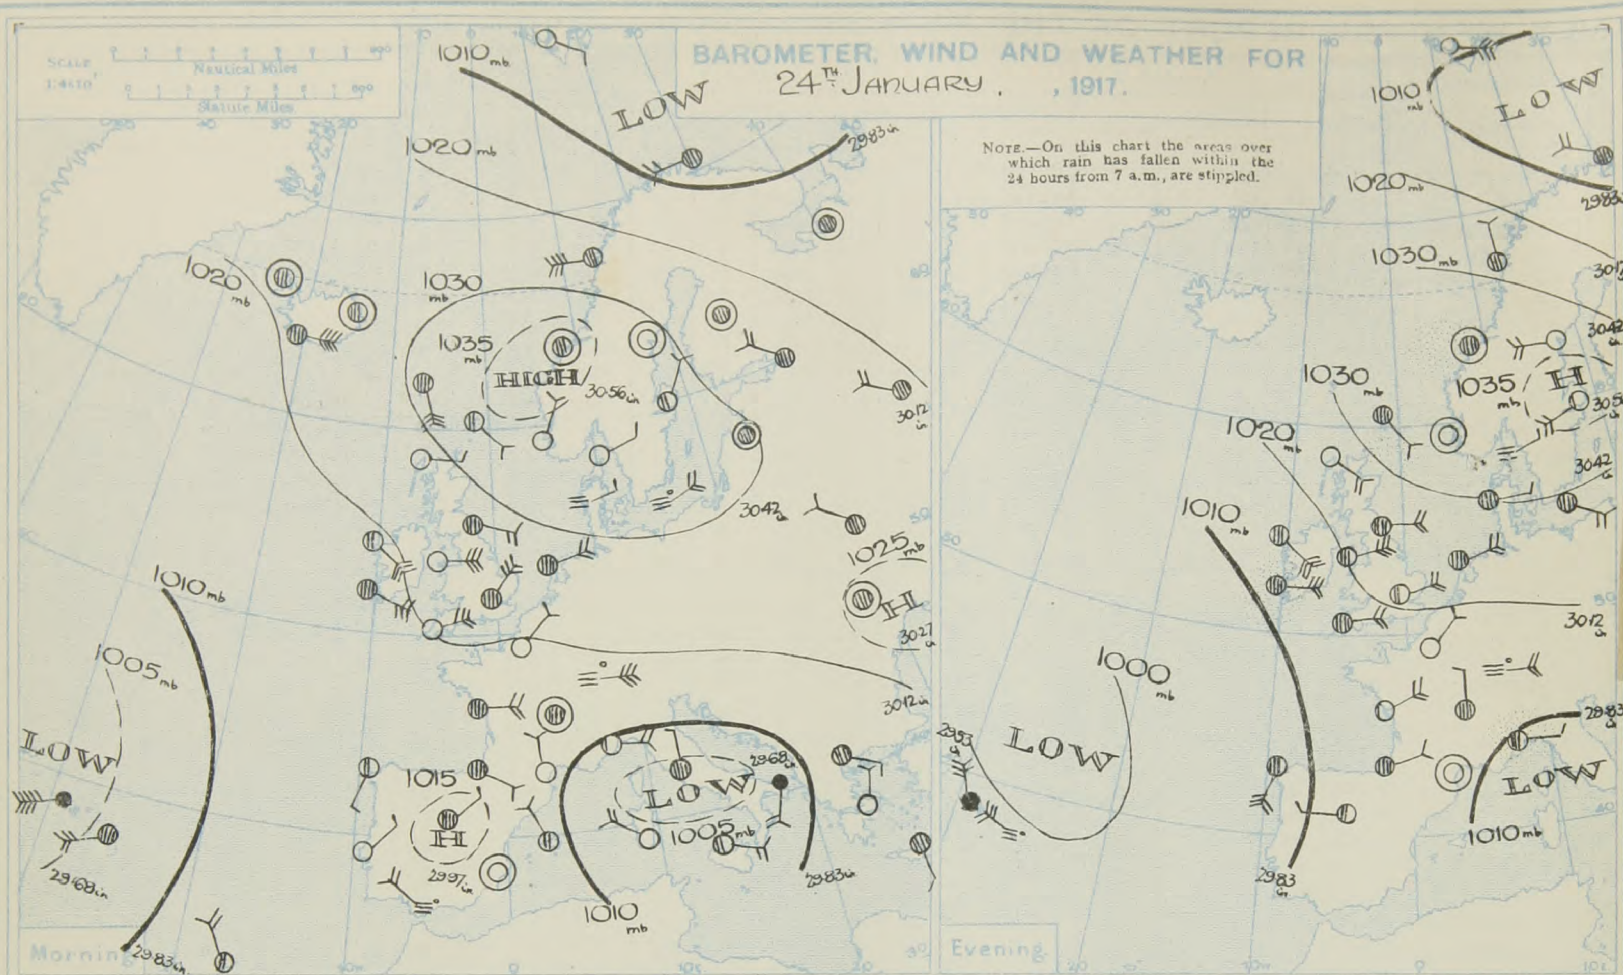 SCALE
1:4x10⁷
Nautical Miles
Statute Miles
BAROMETER, WIND AND WEATHER FOR
24TH JANUARY. , 1917.
NOTE.—On this chart the areas over
which rain has fallen within the
24 hours from 7 a.m., are stippled.
1010 mb
LOW
29·83 in
1020 mb
1020 mb
1030 mb
1035 mb
HIGH
30·56 in
30·12 in
30·42 in
1025 mb
H
30·27 in
1010 mb
1005 mb
LOW
29·68 in
29·83 in
30·12 in
1015
H
29·97 in
29·68 in
LOW
1005 mb
29·83 in
1010 mb
Morning
1010 mb
LOW
29·83
1020 mb
1030 mb
30·12
30·42 in
1035 mb
H
30·56
1030 mb
1020 mb
30·42 in
1010 mb
30·12 in
1000 mb
LOW
29·53 in
29·83 in
29·83 in
LOW
1010 mb
Evening